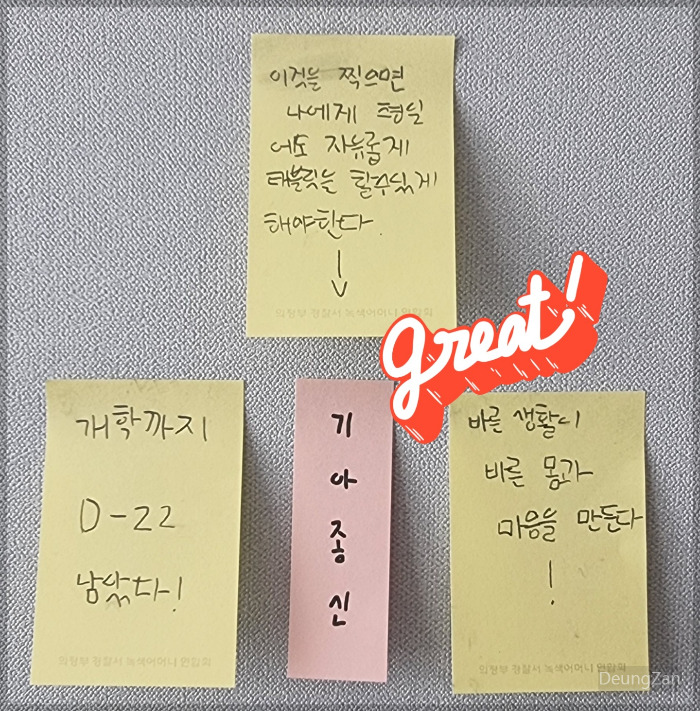 이것을 찍으면
나에게 평일
에도 자유롭게
태블릿을 할수있게
해야한다.
의정부 경찰서 녹색어머니 연합회
great!
개학까지
D-22
남았다!
의정부 경찰서 녹색어머니 연합회
기
아
종
신
바른 생활이
바른 몸과
마음을 만든다
!
의정부 경찰서 녹색어머니 연합회
DeungZan